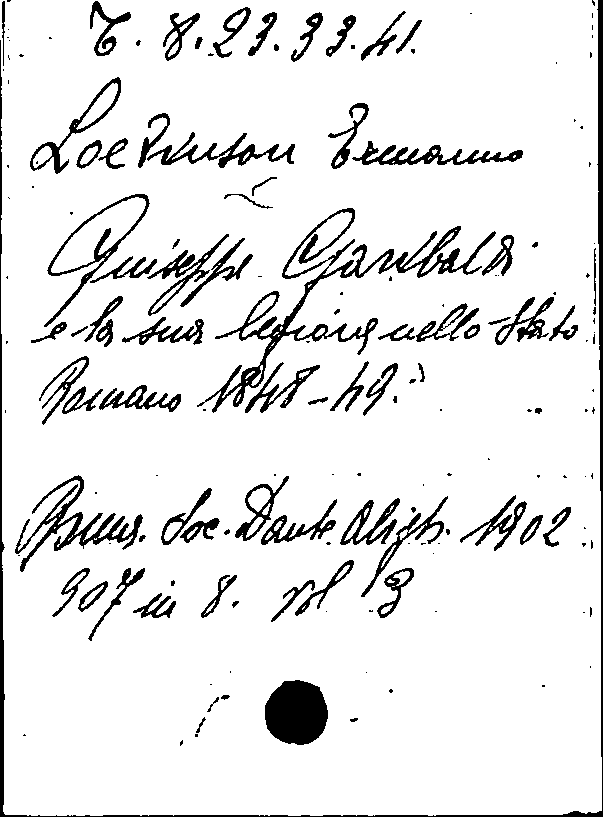 T. 8.23.33.41.
Loevinson Ermanno
Giuseppe Garibaldi
e la sua legione nello Stato
Romano 1848-49.
Roma. Soc. Dante Aligh. 1902
907 in 8. vol 3